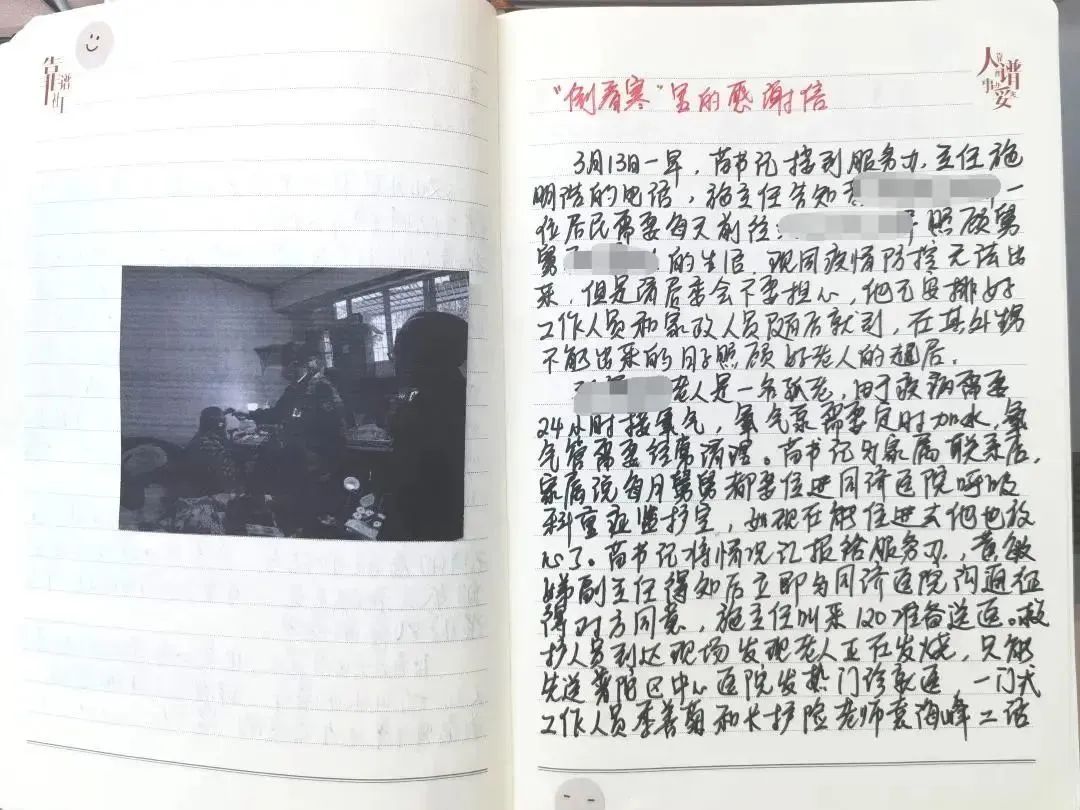 "倒春寒"里的感谢信
3月13日一早，苗书记接到服务办主任施
明浩的电话，施主任告知
一
位居民需要每天前往
照顾舅
舅
的生活，现因疫情防控无法出
来，但是请居委会不要担心，他已安排好
工作人员和家政人员随后就到，在其外甥
不能出来的日子照顾好老人的起居。
老人是一名孤老，由于疾病需要
24小时接氧气，氧气泵需要定时加水，氧
气管需要经常清理。苗书记与家属联系后，
家属说每月舅舅都要住进同济医院呼吸
科重症监护室，如现在能住进去他也放
心了。苗书记将情况汇报给服务办，黄敏
娣副主任得知后立即与同济医院沟通征
得对方同意，施主任叫来120准备送医。救
护人员到达现场发现老人正在发烧，只能
先送普陀区中心医院发热门诊就医，一门式
工作人员李善菊和长护险老师袁海峰二话